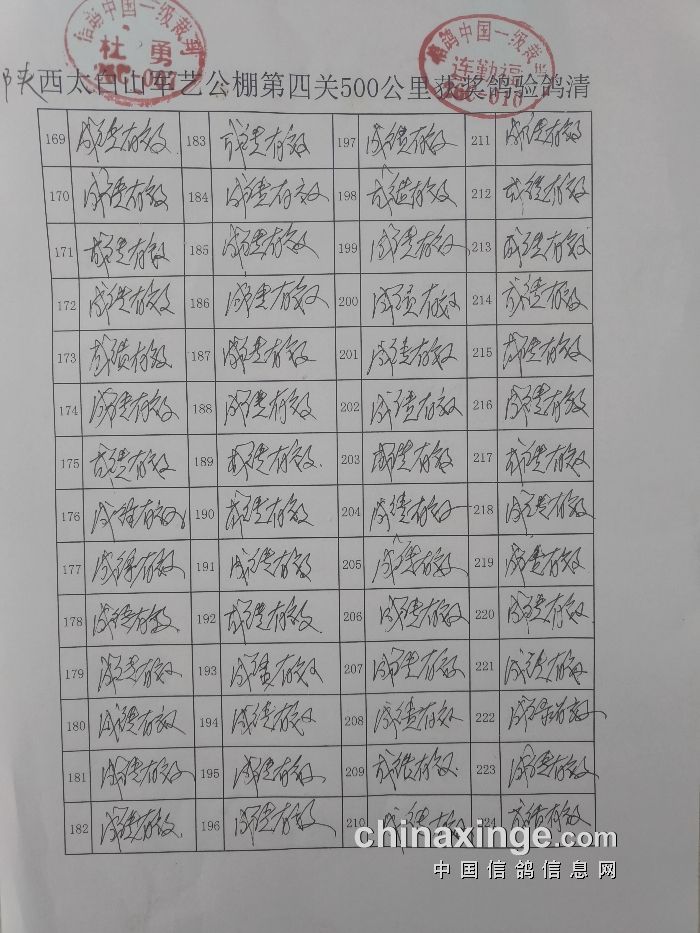 信鸽中国一级裁判
杜 勇
信鸽中国一级裁判
连勤福
陕西太白山军艺公棚第四关500公里获奖鸽验鸽清
169 成绩有效 183 成绩有效 197 成绩有效 211 成绩有效
170 成绩有效 184 成绩有效 198 成绩有效 212 成绩有效
171 成绩有效 185 成绩有效 199 成绩有效 213 成绩有效
172 成绩有效 186 成绩有效 200 成绩有效 214 成绩有效
173 成绩有效 187 成绩有效 201 成绩有效 215 成绩有效
174 成绩有效 188 成绩有效 202 成绩有效 216 成绩有效
175 成绩有效 189 成绩有效 203 成绩有效 217 成绩有效
176 成绩有效 190 成绩有效 204 成绩有效 218 成绩有效
177 成绩有效 191 成绩有效 205 成绩有效 219 成绩有效
178 成绩有效 192 成绩有效 206 成绩有效 220 成绩有效
179 成绩有效 193 成绩有效 207 成绩有效 221 成绩有效
180 成绩有效 194 成绩有效 208 成绩有效 222 成绩有效
181 成绩有效 195 成绩有效 209 成绩有效 223 成绩有效
182 成绩有效 196 成绩有效 210 成绩有效 224 成绩有效
chinaxinge.com
中国信鸽信息网